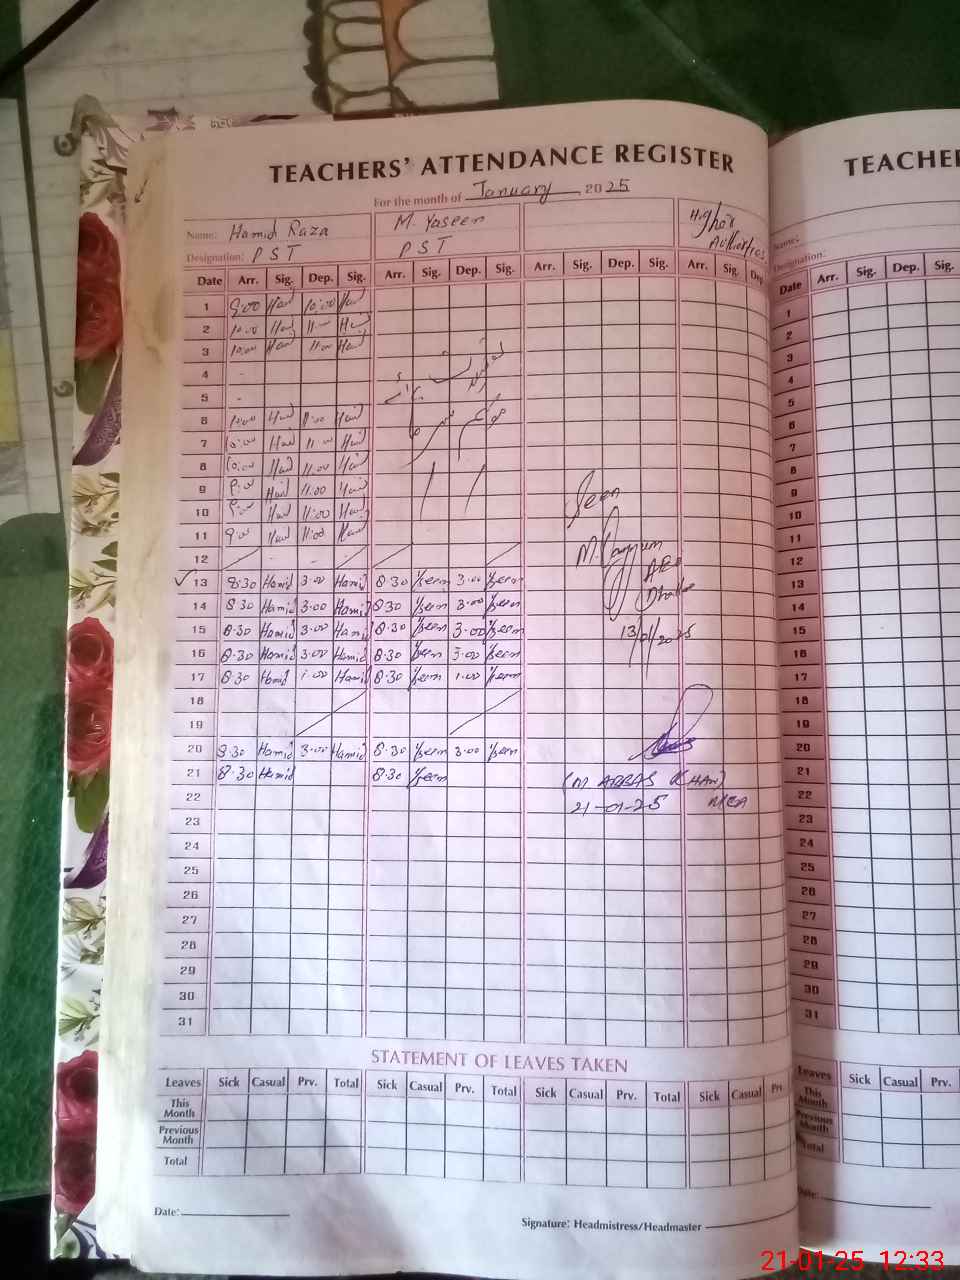 TEACHERS' ATTENDANCE REGISTER
For the month of January 2025
Name: Hamid Raza M. Yaseen Higher
Designation: PST PST
Date Arr. Sig. Dep. Sig. Arr. Sig. Dep. Sig. Arr. Sig. Dep. Sig. Arr. Sig. Dep
1 9:00 10:00
2 10:00 11:00
3 10:00 11:00
4 -
5 -
6 10:00 11:00
7 10:00 11:00
8 10:00 11:00
9 9:00 11:00
10 9:00 11:00
11 9:00 11:00
12
13 8:30 Hamid 3:00 Hamid 8:30 Yseen 3:00 Yseen
14 8:30 Hamid 3:00 Hamid 8:30 Yseen 3:00 Yseen
15 8:30 Hamid 3:00 Hamid 8:30 Yseen 3:00 Yseen
16 8:30 Hamid 3:00 Hamid 8:30 Yseen 3:00 Yseen
17 8:30 Hamid 1:00 Hamid 8:30 Yseen 1:00 Yseen
18
19
20 8:30 Hamid 3:00 Hamid 8:30 Yseen 3:00 Yseen
21 8:30 Hamid 8:30 Yseen
22
23
24
25
26
27
28
29
30
31
Seen
M. Qayyum
AEO
13/01/2025
(M ABBAS KHAN)
21-01-25 MEA
STATEMENT OF LEAVES TAKEN
Leaves Sick Casual Prv. Total Sick Casual Prv. Total Sick Casual Prv. Total Sick Casual Prv
This Month
Previous Month
Total
Date:
Signature: Headmistress/Headmaster
TEACHE
Name:
Designation:
Date Arr. Sig. Dep. Sig.
1
2
3
4
5
6
7
8
9
10
11
12
13
14
15
16
17
18
19
20
21
22
23
24
25
26
27
28
29
30
31
Leaves Sick Casual Prv.
This Month
Previous Month
Total
Date:
21-01-25 12:33